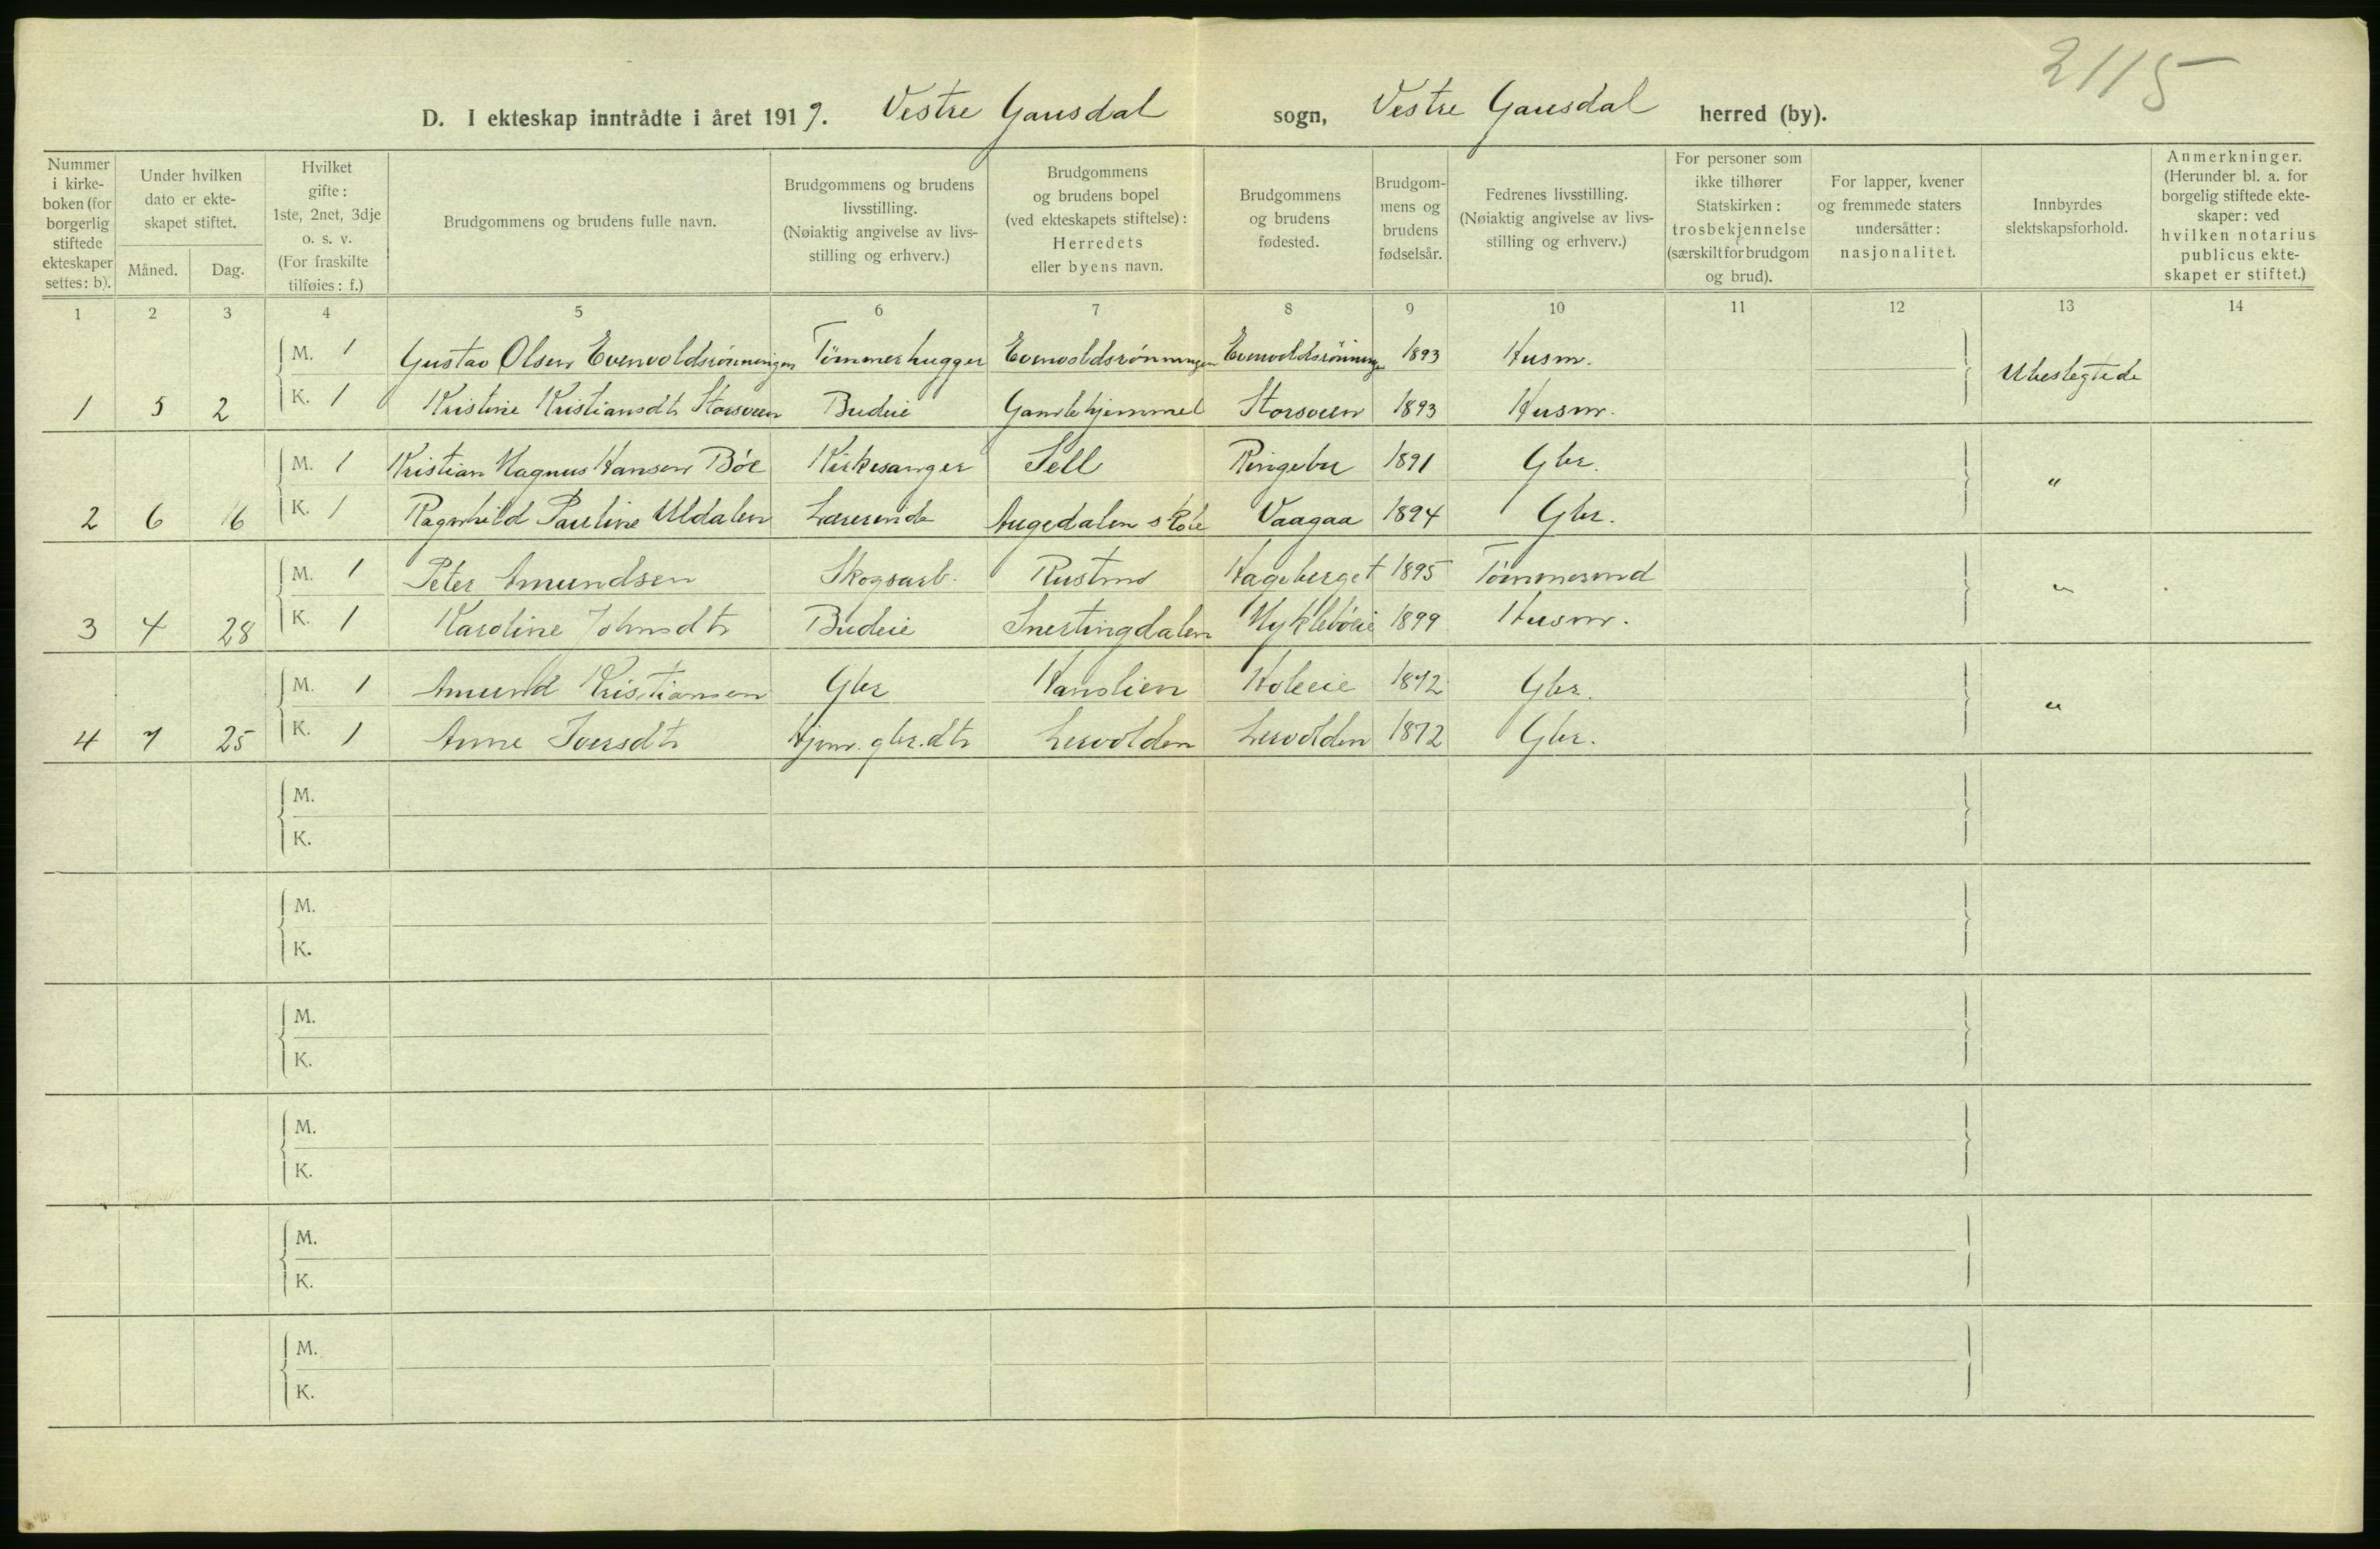 2115
D. I ekteskap inntrådte i året 1919. Vestre Gausdal sogn, Vestre Gausdal herred (by).
Nummer i kirke- boken (for borgerlig stiftede ekteskaper settes: b).
Under hvilken dato er ekte- skapet stiftet.
Måned. Dag.
Hvilket gifte: 1ste, 2net, 3dje o. s. v. (For fraskilte tilføies: f.)
Brudgommens og brudens fulle navn.
Brudgommens og brudens livsstilling. (Nøiaktig angivelse av livs- stilling og erhverv.)
Brudgommens og brudens bopel (ved ekteskapets stiftelse): Herredets eller byens navn.
Brudgommens og brudens fødested.
Brudgom- mens og brudens fødselsår.
Fedrenes livsstilling. (Nøiaktig angivelse av livs- stilling og erhverv.)
For personer som ikke tilhører Statskirken: trosbekjennelse (særskilt for brudgom og brud).
For lapper, kvener og fremmede staters undersåtter: nasjonalitet.
Innbyrdes slektskapsforhold.
Anmerkninger. (Herunder bl. a. for borgelig stiftede ekte- skaper: ved hvilken notarius publicus ekte- skapet er stiftet.)
1 2 3 4 5 6 7 8 9 10 11 12 13 14
M. 1 Gustav Olsen Evenvoldsrønningen Tømmerhugger Evenvoldsrønningen Evenvoldsrønningen 1893 Husm. Ubeslegtede
1 5 2 K. 1 Kristine Kristiansdtr Storsveen Budeie Gamlehjemmet Storsveen 1893 Husm.
M. 1 Kristian Magnus Hansen Bøe Kirkesanger Sell Ringebu 1891 Gbr. "
2 6 16 K. 1 Ragnhild Pauline Uldalen Lærerinde Augedalen skole Vaagaa 1894 Gbr.
M. 1 Peter Amundsen Skogsarb. Rustmo Hageberget 1895 Tømmermd "
3 4 28 K. 1 Karoline Johnsdtr Budeie Snertingdalen Nyklebøeie 1899 Husm.
M. 1 Amund Kristiansen Gbr Hanslien Holeeie 1872 Gbr. "
4 7 25 K. 1 Anne Iversdtr Hjem. gbr.dtr Lervolden Lervolden 1872 Gbr.
M.
K.
M.
K.
M.
K.
M.
K.
M.
K.
M.
K.